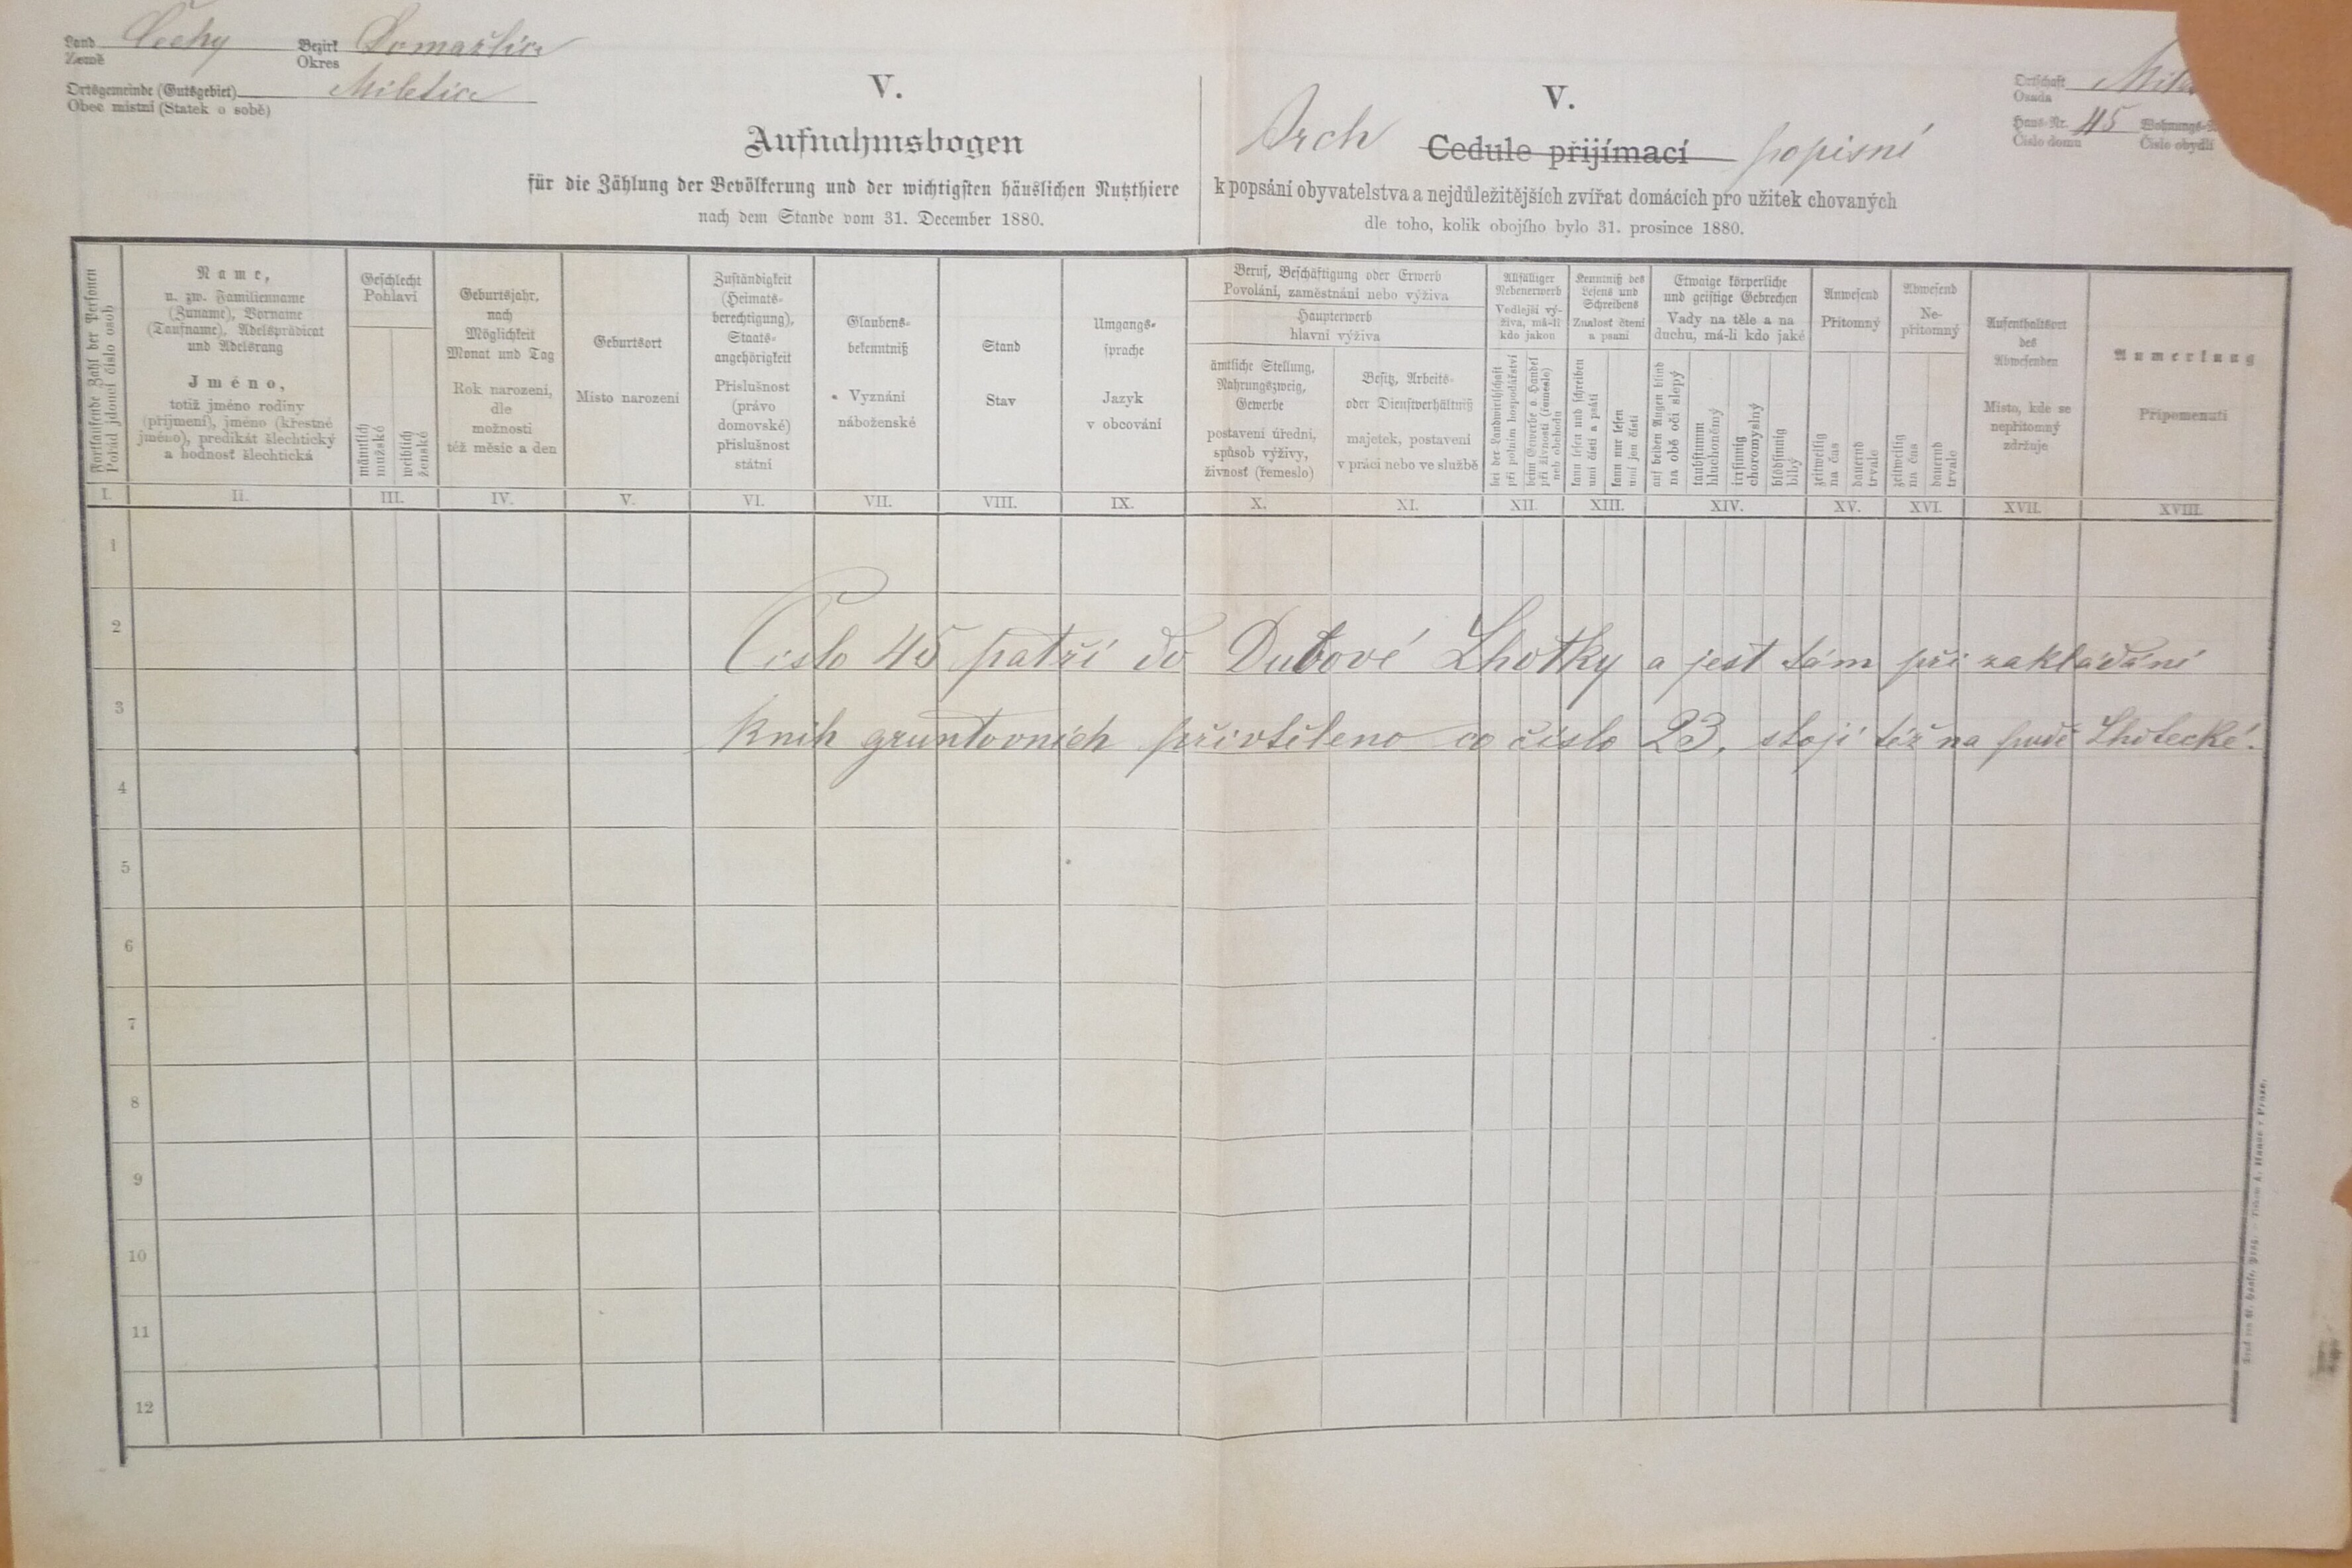 Land Čechy Bezirk Domažlice
Země Okres
Ortsgemeinde (Gutsgebiet) Miletice
Obec místní (Statek o sobě)
V.
Aufnahmsbogen
für die Zählung der Bevölkerung und der wichtigsten häuslichen Nutzthiere
nach dem Stande vom 31. December 1880.
V.
Arch Cedule přijímací popisní
k popsání obyvatelstva a nejdůležitějších zvířat domácích pro užitek chovaných
dle toho, kolik obojího bylo 31. prosince 1880.
Ortschaft
Osada
Haus-Nr. 45 Wohnungs-
Číslo domu Číslo obydlí
Fortlaufende Zahl der Personen
Pořád jdoucí číslo osob
Name,
u. zw. Familienname
(Zuname), Vorname
(Taufname), Adelsprädicat
und Adelsrang
Jméno,
totiž jméno rodiny
(příjmení), jméno (křestné
jméno), predikát šlechtický
a hodnost šlechtická
Geschlecht
Pohlaví
männlich
mužské
weiblich
ženské
Geburtsjahr,
nach
Möglichkeit
Monat und Tag
Rok narození,
dle
možnosti
též měsíc a den
Geburtsort
Místo narození
Zuständigkeit
(Heimats-
berechtigung),
Staats-
angehörigkeit
Příslušnost
(právo
domovské)
příslušnost
státní
Glaubens-
bekenntniß
Vyznání
náboženské
Stand
Stav
Umgangs-
sprache
Jazyk
v obcování
Beruf, Beschäftigung oder Erwerb
Povolání, zaměstnání nebo výživa
Haupterwerb
hlavní výživa
ämtliche Stellung,
Nahrungszweig,
Gewerbe
postavení úřední,
spůsob výživy,
živnost (řemeslo)
Besitz, Arbeits-
oder Dienstverhältniß
majetek, postavení
v práci nebo ve službě
Allfälliger
Nebenerwerb
Vedlejší vý-
živa, má-li
kdo jakou
bei der Landwirthschaft
při polním hospodářství
beim Gewerbe o. Handel
při živnosti (řemesle)
neb obchodu
Kenntniß des
Lesens und
Schreibens
Znalost čtení
a psaní
kann lesen und schreiben
umí čísti a psáti
kann nur lesen
umí jen čísti
Etwaige körperliche
und geistige Gebrechen
Vady na těle a na
duchu, má-li kdo jaké
auf beiden Augen blind
na obě oči slepý
taubstumm
hluchoněmý
irrsinnig
choromyslný
blödsinnig
blbý
Anwesend
Přítomný
zeitweilig
na čas
dauernd
trvale
Abwesend
Ne-
přítomný
zeitweilig
na čas
dauernd
trvale
Aufenthaltsort
des
Abwesenden
Místo, kde se
nepřítomný
zdržuje
Anmerkung
Připomenutí
I. II. III. IV. V. VI. VII. VIII. IX. X. XI. XII. XIII. XIV. XV. XVI. XVII. XVIII.
1
2
Číslo 45 patří do Dubové Lhotky a jest tám při zakládání
3
knih gruntovních přivtěleno co číslo 23. stojí též na půdě Lhotecké.
4
5
6
7
8
9
10
11
12